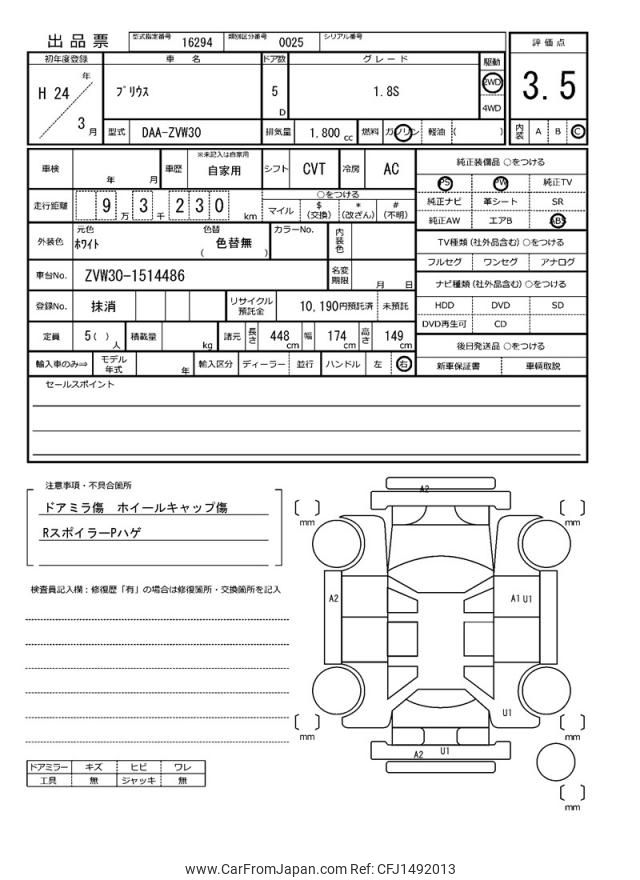 出品票 型式指定番号 16294 類別区分番号 0025 シリアル番号
評価点
3.5
内装 A B C
初年度登録 車名 ドア数 グレード 駆動
H 24 年 3 月 プリウス 5 D 1.8S 2WD 4WD
型式 DAA-ZVW30 排気量 1,800 cc 燃料 ガソリン 軽油 ( )
車検 年 月 車歴 ※未記入は自家用 自家用 シフト CVT 冷房 AC
走行距離 9 万 3 千 2 3 0 km ○をつける
マイル $ (交換) * (改ざん) # (不明)
外装色 元色 ホワイト 色替 色替無 ( ) カラーNo. 内装色
車台No. ZVW30-1514486 名変期限 月 日
登録No. 抹消 リサイクル預託金 10,190円預託済 未預託
定員 5( ) 人 積載量 kg 諸元 長さ 448 cm 幅 174 cm 高さ 149 cm
輸入車のみ⇒ モデル年式 年 輸入区分 ディーラー 並行 ハンドル 左 右
純正装備品 ○をつける
PS PW 純正TV
純正ナビ 革シート SR
純正AW エアB ABS
TV種類 (社外品含む) ○をつける
フルセグ ワンセグ アナログ
ナビ種類 (社外品含む) ○をつける
HDD DVD SD
DVD再生可 CD
後日発送品 ○をつける
新車保証書 車輌取説
セールスポイント
注意事項・不具合箇所
ドアミラ傷 ホイールキャップ傷
RスポイラーPハゲ
検査員記入欄：修復歴「有」の場合は修復箇所・交換箇所を記入
ドアミラー キズ ヒビ ワレ
工具 無 ジャッキ 無
A2
mm
mm
A2
A1 U1
U1
mm
mm
A2 U1
mm
www.CarFromJapan.com Ref: CFJ1492013